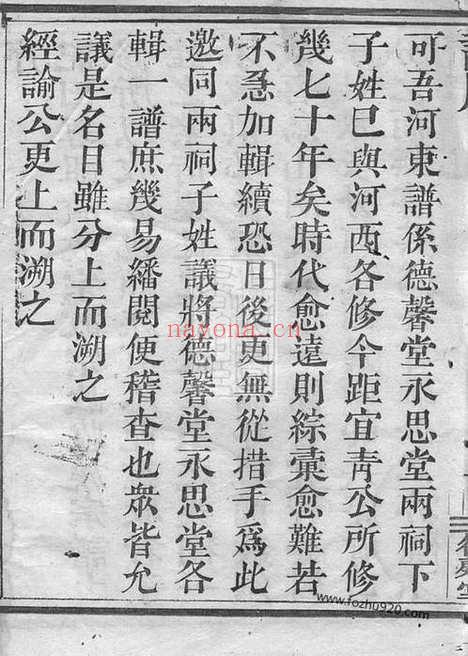 可吾河東譜係德馨堂永思堂兩祠下
子姓巳與河西各修今距宜青公所修
幾七十年矣時代愈遠則綜彙愈難若
不急加輯續恐日後更無從措手爲此
邀同兩祠子姓議將德馨堂永思堂各
輯一譜庶幾易繙閱便稽查也衆皆允
議是名目雖分上而溯之
經論公更上而溯之
nayona.cn
www.fozhu920.com